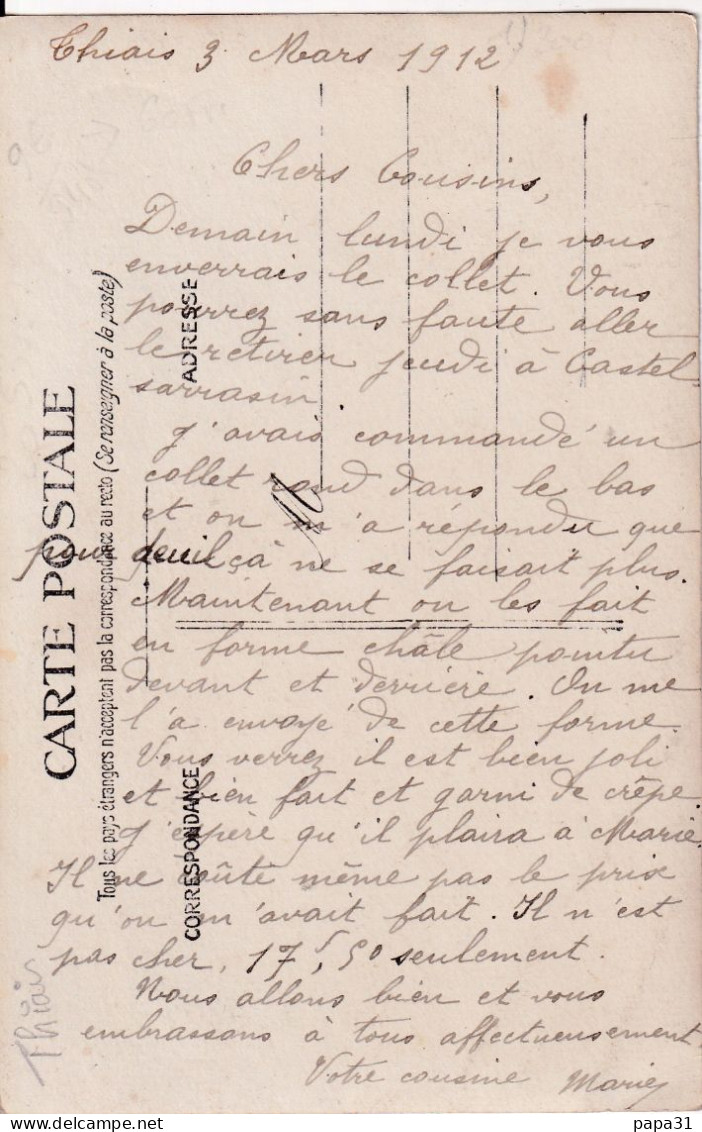 Thiais 3 Mars 1912
Chers Cousins,
Demain lundi je vous
enverrais le collet. Vous
pourrez sans faute aller
le retirer jeudi à Castel-
sarrasin.
J'avais commandé un
collet rond dans le bas
et on m'a répondu que
pour deuil çà ne se faisait plus.
Maintenant on les fait
en forme châle pointu
devant et derrière. On me
l'a envoyé de cette forme.
Vous verrez il est bien joli
et bien fait et garni de crêpe.
J'espère qu'il plaira à Marie.
Il ne coûte même pas le prix
qu'on m'avait fait. Il n'est
pas cher, 17f,50 seulement.
Nous allons bien et vous
embrassons à tous affectueusement.
Votre cousine Marie
Thiais
CARTE POSTALE
Tous les pays étrangers n'acceptent pas la correspondance au recto (Se renseigner à la poste)
CORRESPONDANCE
ADRESSE
papa31